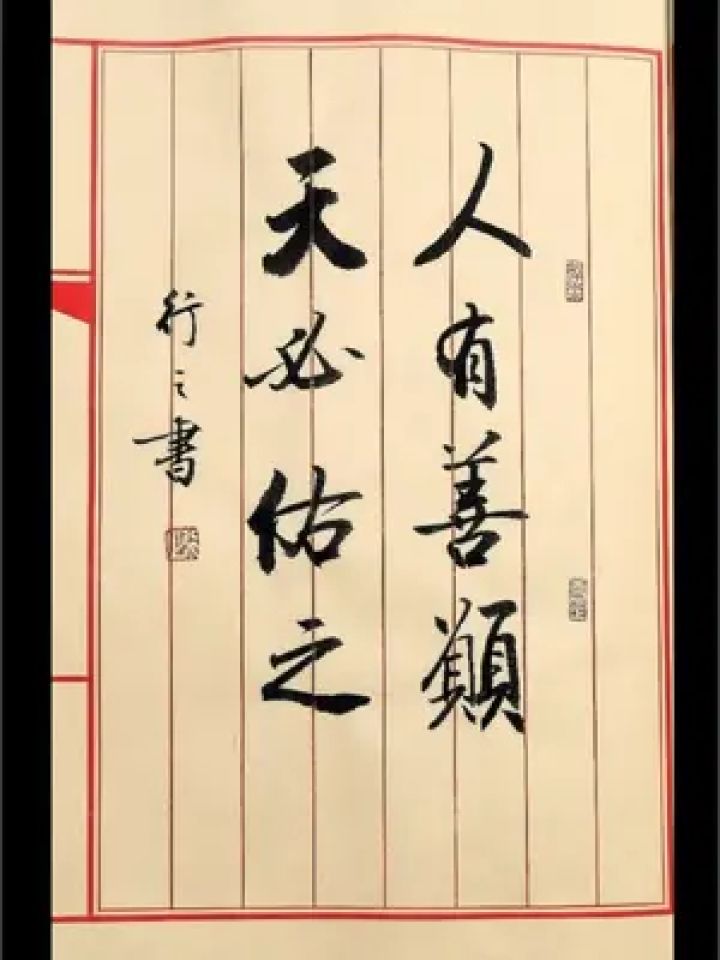 人有善願
天必佑之
行之書